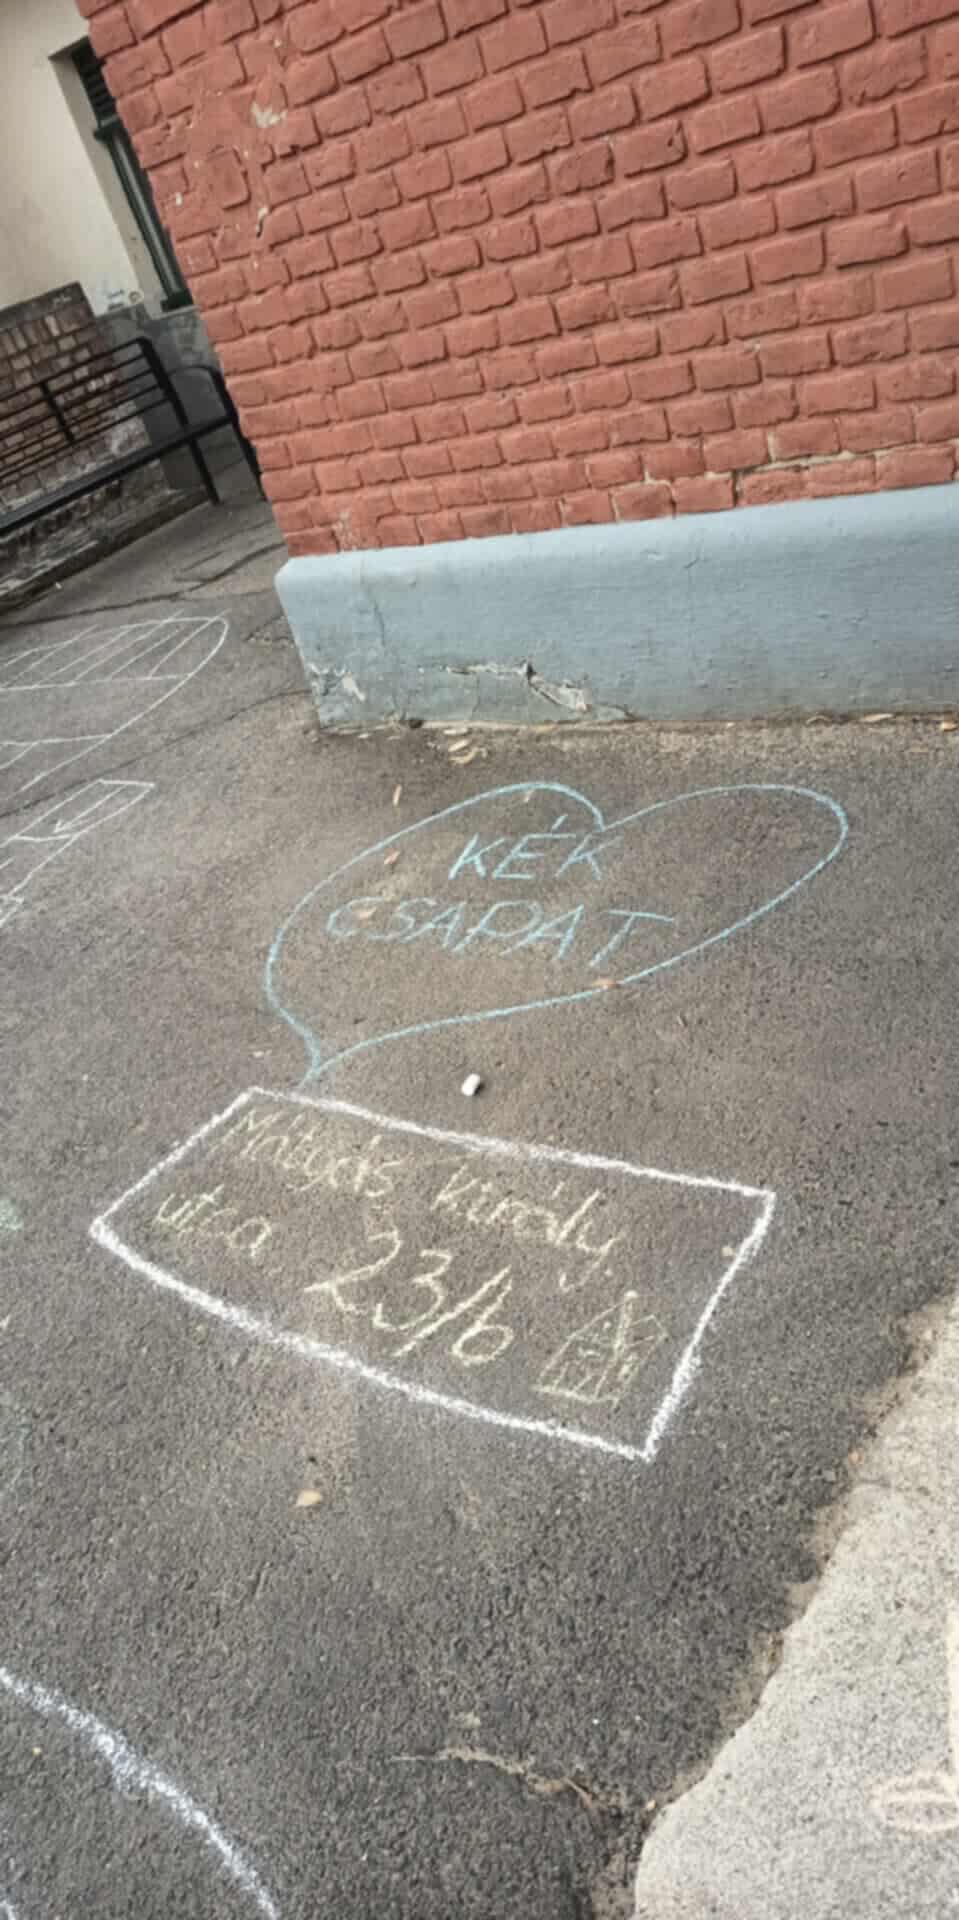 KÉK
CSAPAT
Mátyás király
utca 23/b